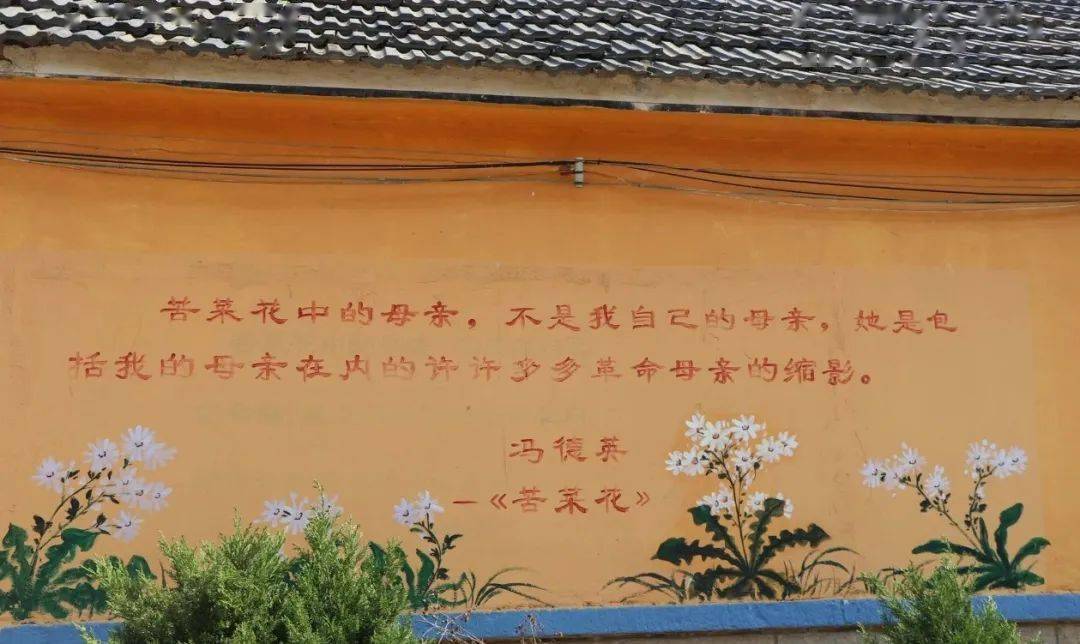 苦菜花中的母亲，不是我自己的母亲，她是包
括我的母亲在内的许许多多革命母亲的缩影。
冯德英
—《苦菜花》